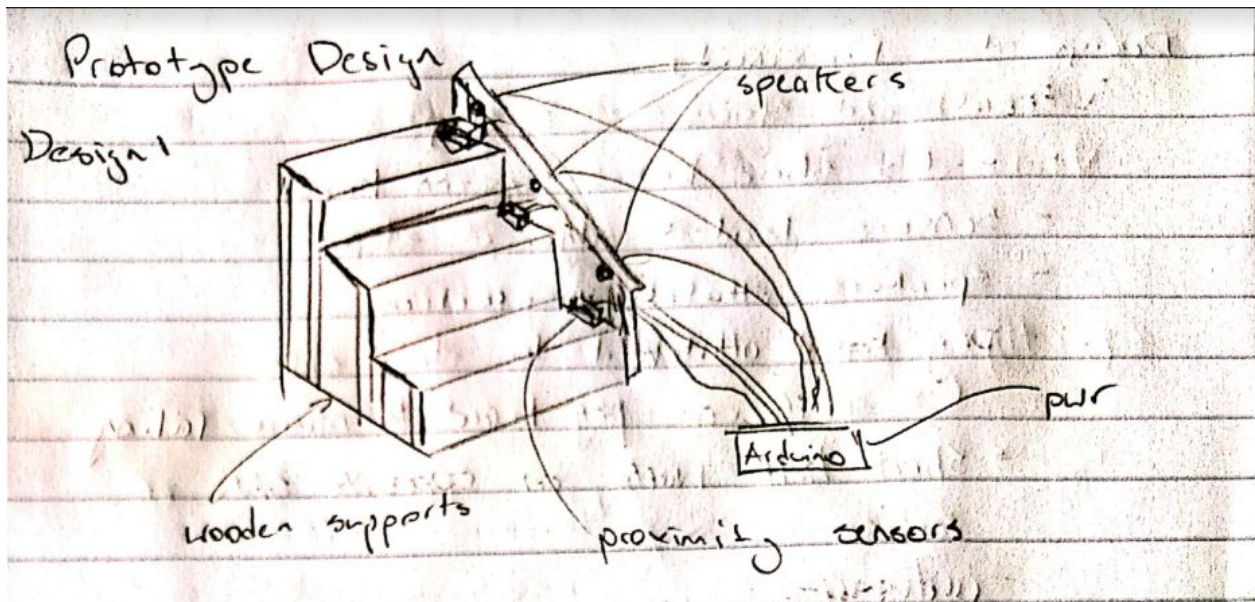 Prototype Design
speakers
Design 1
pwr
Arduino
wooden supports
proximity sensors